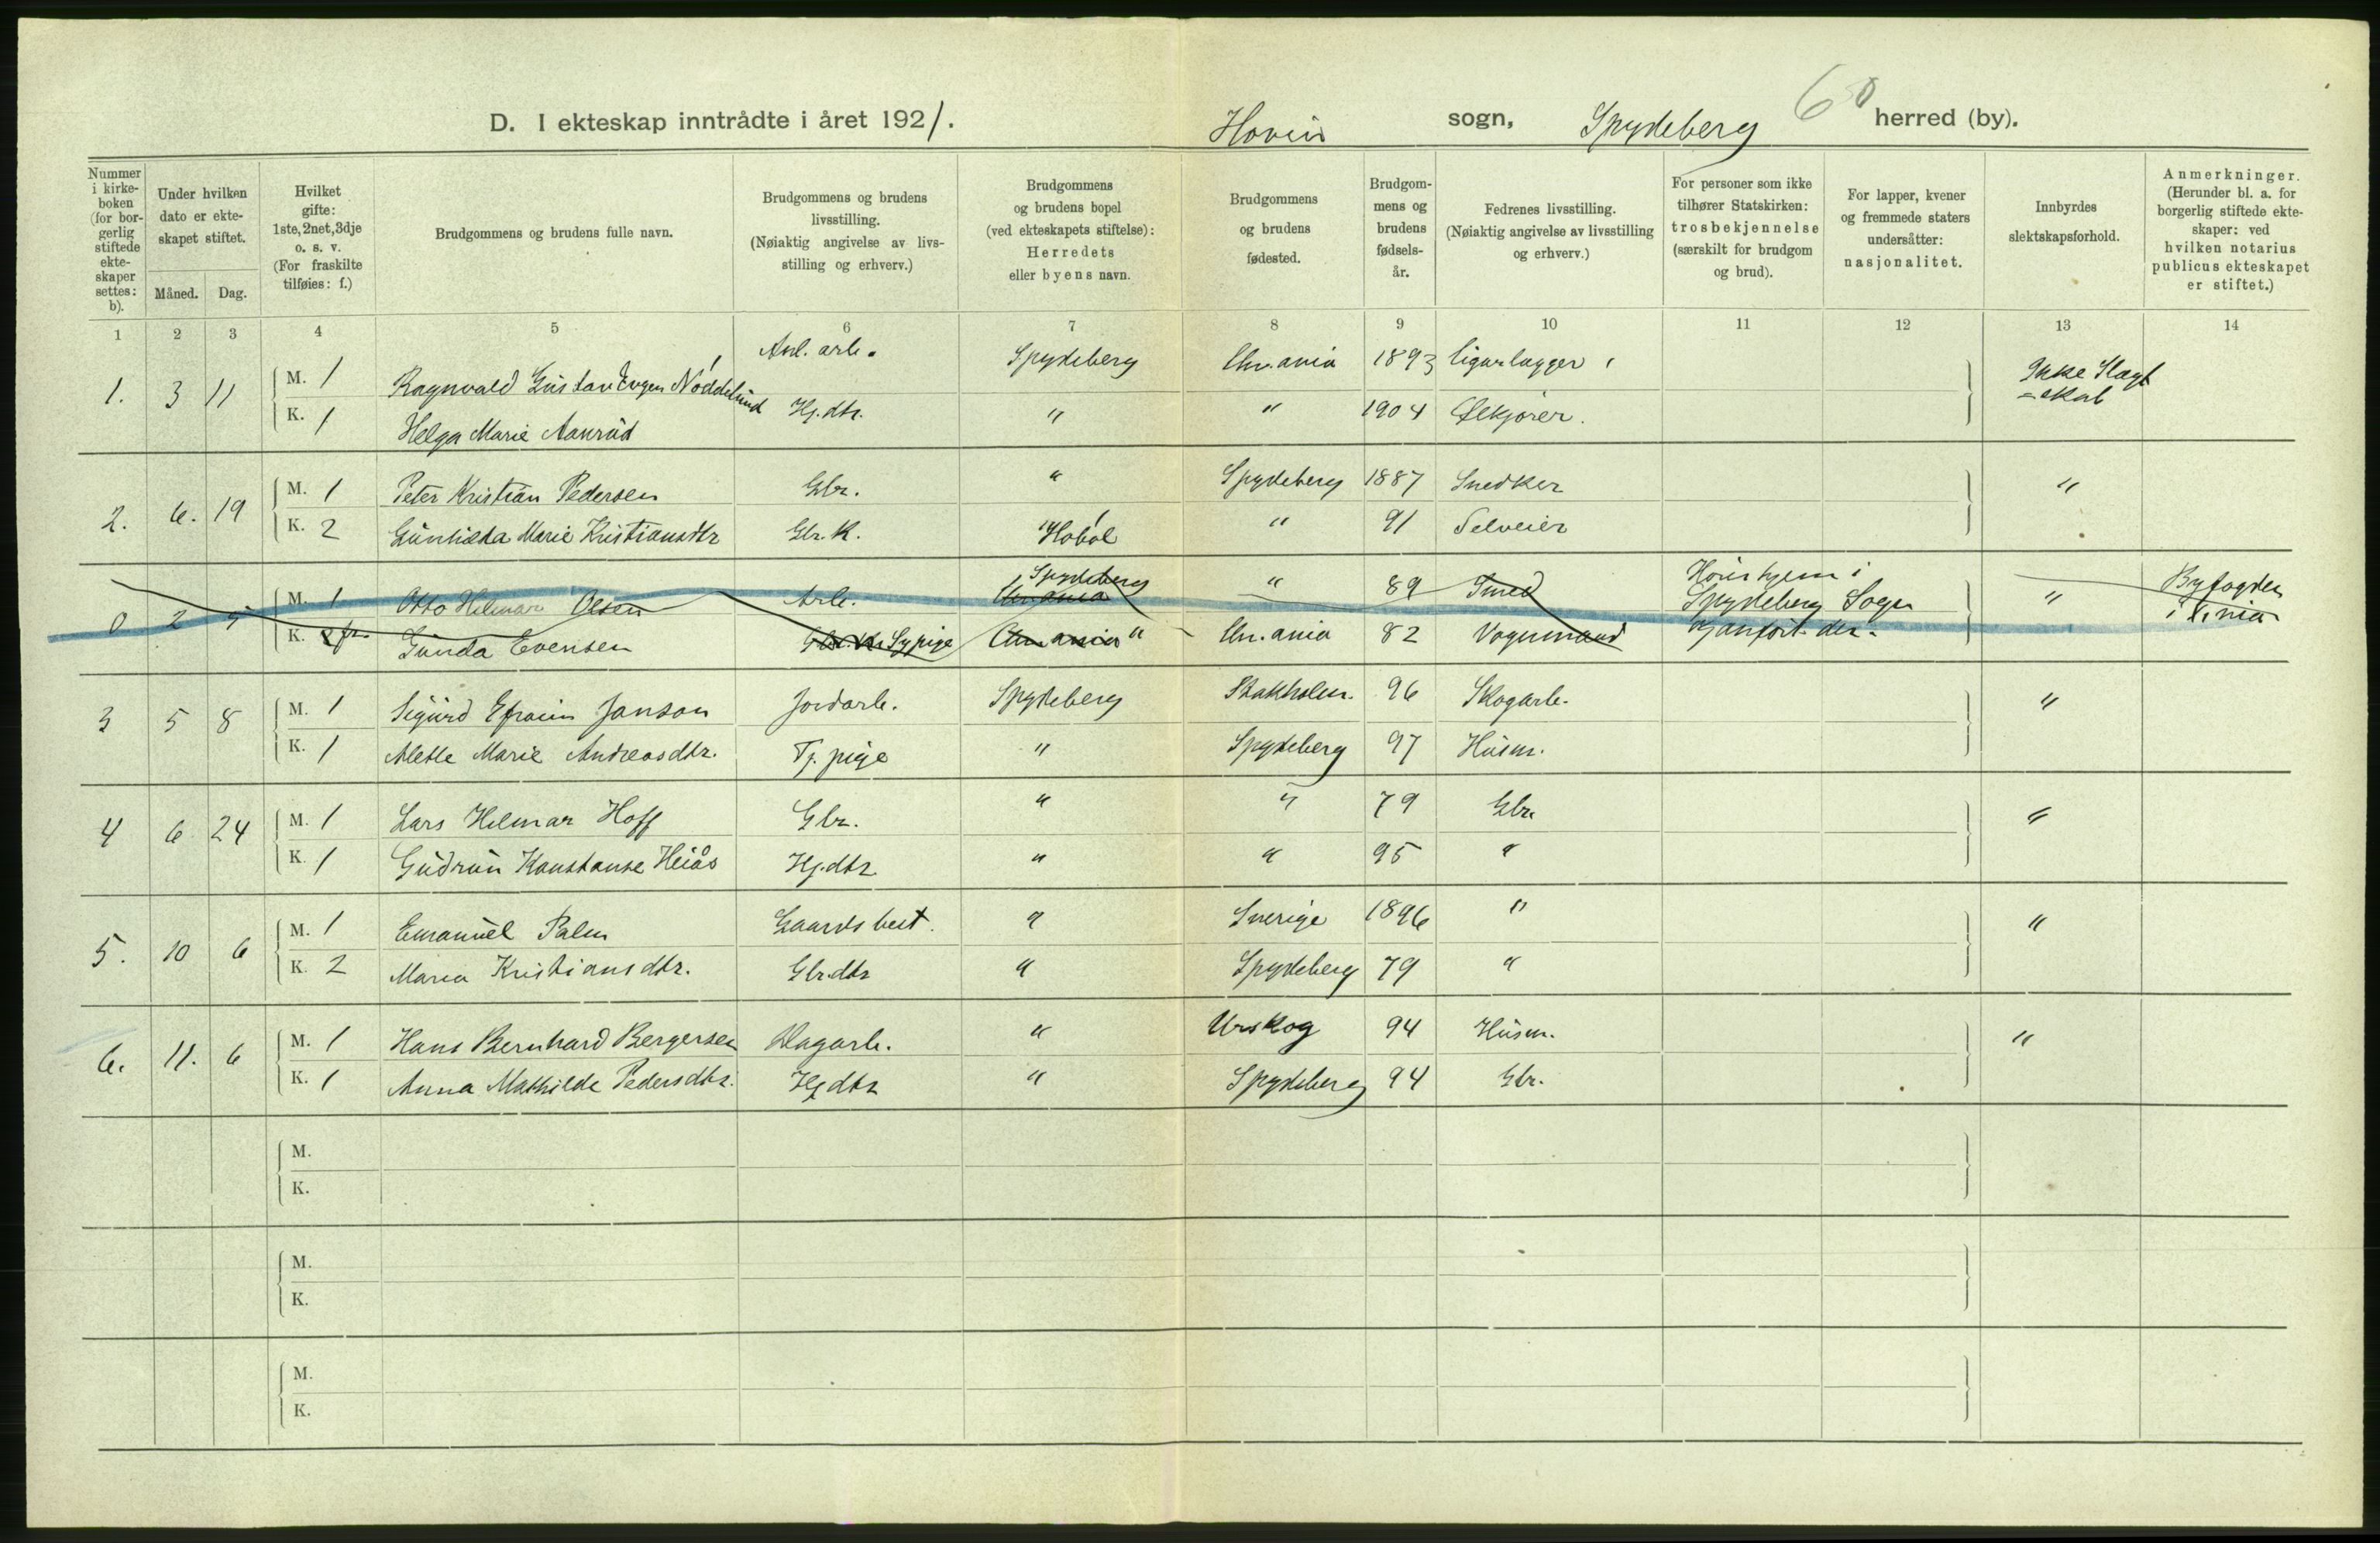 D. I ekteskap inntrådte i året 1921. Hovin sogn, Spydeberg 60 herred (by).
Nummer i kirkeboken (for borgerlig stiftede ekteskaper settes: b).
Under hvilken dato er ekteskapet stiftet.
Måned. Dag.
Hvilket gifte: 1ste, 2net, 3dje o. s. v. (For fraskilte tilføies: f.)
Brudgommens og brudens fulle navn.
Brudgommens og brudens livsstilling. (Nøiaktig angivelse av livsstilling og erhverv.)
Brudgommens og brudens bopel (ved ekteskapets stiftelse): Herredets eller byens navn.
Brudgommens og brudens fødested.
Brudgommens og brudens fødselsår.
Fedrenes livsstilling. (Nøiaktig angivelse av livsstilling og erhverv.)
For personer som ikke tilhører Statskirken: trosbekjennelse (særskilt for brudgom og brud).
For lapper, kvener og fremmede staters undersåtter: nasjonalitet.
Innbyrdes slektskapsforhold.
Anmerkninger. (Herunder bl. a. for borgerlig stiftede ekteskaper: ved hvilken notarius publicus ekteskapet er stiftet.)
1 2 3 4 5 6 7 8 9 10 11 12 13 14
1. 3 11 M. 1 Ragnvald Gustav Eugen Noddelund Anl. arb. Spydeberg Chr.ania 1893 Cigarlagger Ikke Slagt
=skab
K. 1 Helga Marie Aanrud Hj.dtr. " " 1904 Ølkjører.
2. 6. 19 M. 1 Peter Kristian Pedersen Gbr. " Spydeberg 1887 Snedker "
K. 2 Gunhilda Marie Kristiansdtr Gbr. K. Hobøl " 91 Selveier
0 2 5 M. 1 Otto Hilmar Olsen Arb. Spydeberg Chr.ania " 89 Smed Spydeberg Sogn " Byfogden
i Kr.nia
K. 2 fr. Gunda Evensen Sypige Chr.ania " Chr.ania 82 Vognmand
3 5 8 M. 1 Sigurd Efraim Janson Jordarb. Spydeberg Stokholm. 96 Skogarb. "
K. 1 Alette Marie Andreasdtr. Tj. pige " Spydeberg 97 Husm.
4 6 24 M. 1 Lars Hilmar Hoff Gbr. " " 79 Gbr. "
K. 1 Gudrun Konstanse Heiås Hj.dtr " " 95 "
5. 10 6 M. 1 Emanuel Palm Gaardsbest. " Sverige 1896 " "
K. 2 Maria Kristiansdtr. Gbr.dtr " Spydeberg 79 "
6. 11. 6 M. 1 Hans Bernhard Bergersen Dagarb. " Urskog 94 Husm. "
K. 1 Anna Mathilde Pedersdtr. Hj dtr " Spydeberg 94 Gbr.
M.
K.
M.
K.
M.
K.